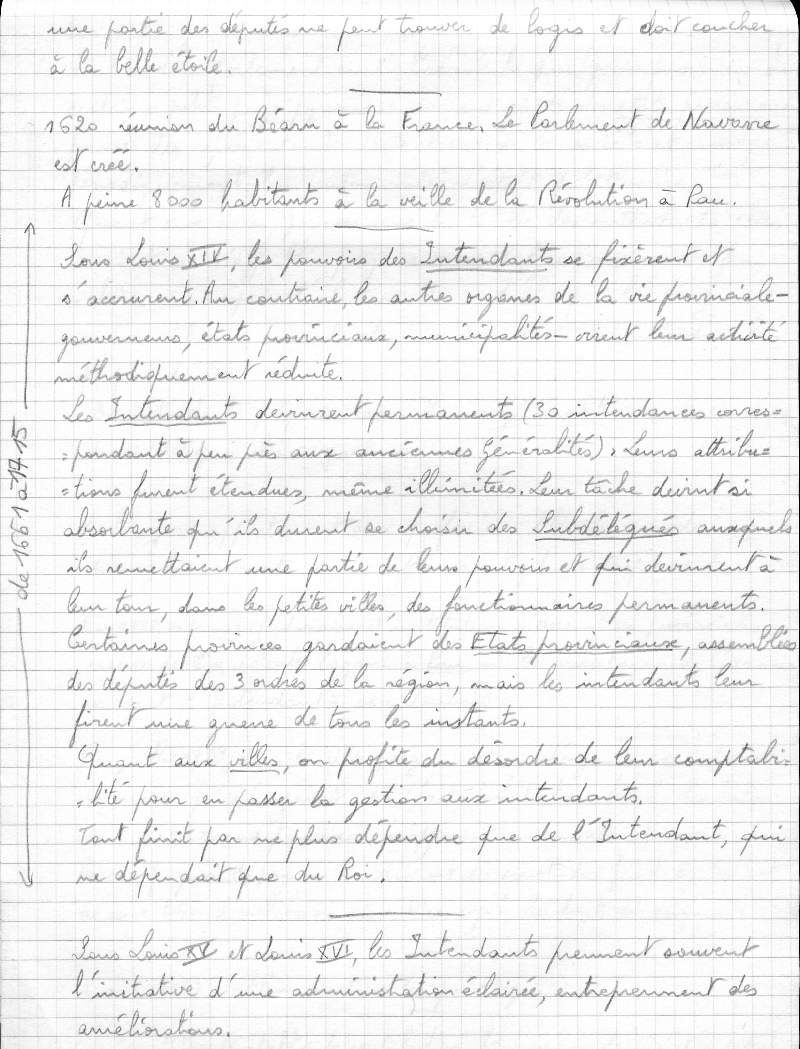 une partie des députés ne peut trouver de logis et doit coucher
à la belle étoile.
1620 réunion du Béarn à la France. Le Parlement de Navarre
est créé.
A peine 8000 habitants à la veille de la Révolution à Pau.
Sous Louis XIV, les pouvoirs des Intendants se fixèrent et
s'accrurent. Au contraire, les autres organes de la vie provinciale -
gouverneurs, états provinciaux, municipalités - virent leur activité
méthodiquement réduite.
Les Intendants devinrent permanents (30 intendances corres=
=pondant à peu près aux anciennes Généralités). Leurs attribu=
=tions furent étendues, même illimitées. Leur tâche devint si
absorbante qu'ils durent se choisir des Subdélégués auxquels
ils remettaient une partie de leurs pouvoirs et qui devinrent à
leur tour, dans les petites villes, des fonctionnaires permanents.
Certaines provinces gardaient des Etats provinciaux, assemblées
des députés des 3 ordres de la région, mais les intendants leur
firent une guerre de tous les instants.
Quant aux villes, on profite du désordre de leur comptabi=
=lité pour en passer la gestion aux intendants.
Tout finit par ne plus dépendre que de l'Intendant, qui
ne dépendait que du Roi.
de 1661 à 1715
Sous Louis XV et Louis XVI, les Intendants prennent souvent
l'initiative d'une administration éclairée, entreprennent des
améliorations.